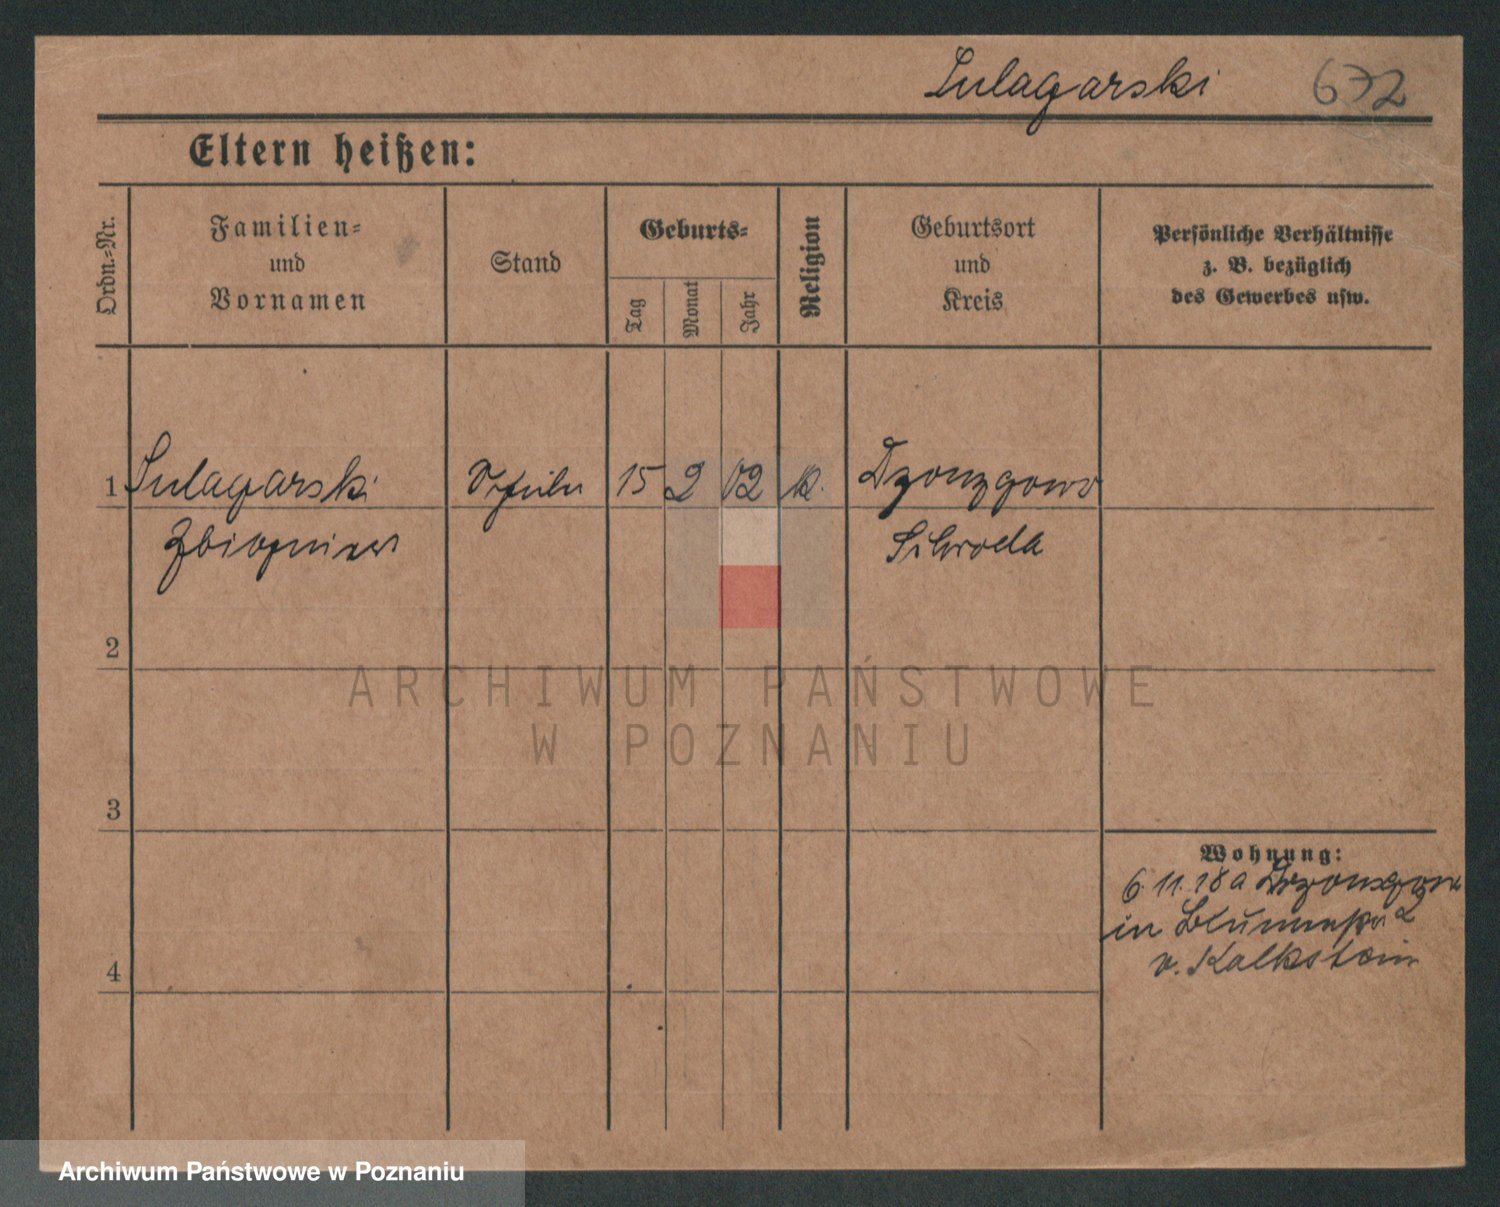 Sulagarski 672
Eltern heißen:
Ordn.-Nr.
Familien-
und
Vornamen
Stand
Geburts-
Tag
Monat
Jahr
Religion
Geburtsort
und
Kreis
Persönliche Verhältnisse
z. B. bezüglich
des Gewerbes usw.
1 Sulagarski 15 2 02 k.
Schroda
2
3
4
Wohnung:
6.11.18 a
in 2
v. Kalkstein
ARCHIWUM PAŃSTWOWE
W POZNANIU
Archiwum Państwowe w Poznaniu